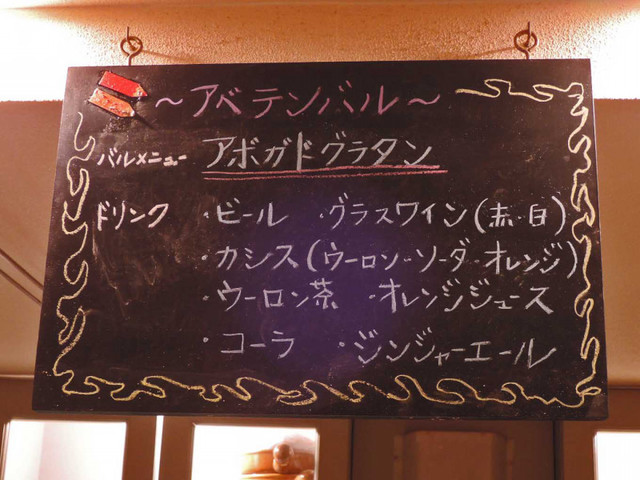 ～アベテンバル～
バルメニュー アボガドグラタン
ドリンク ・ビール ・グラスワイン(赤・白)
・カシス(ウーロン・ソーダ・オレンジ)
・ウーロン茶 ・オレンジジュース
・コーラ ・ジンジャーエール